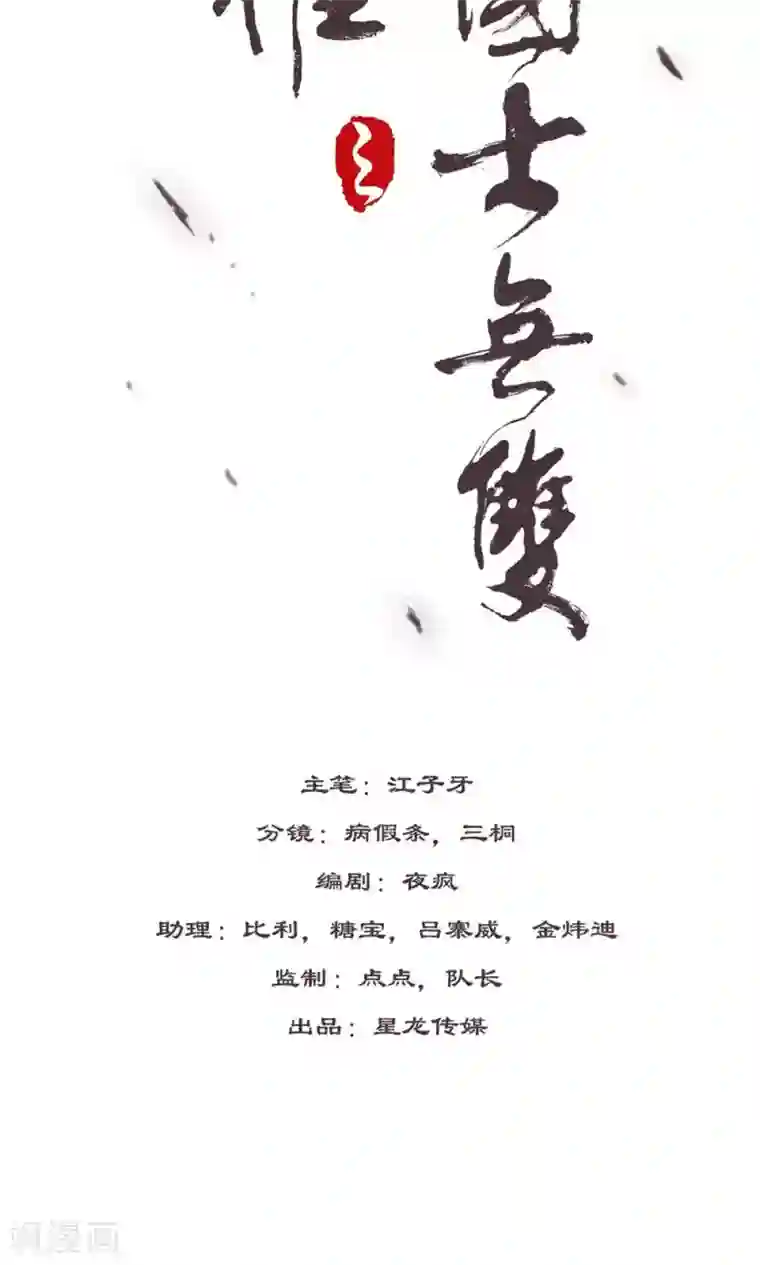 國士無雙
之
主笔：江子牙
分镜：病假条，三桐
编剧：夜疯
助理：比利，糖宝，吕寨威，金炜迪
监制：点点，队长
出品：星龙传媒